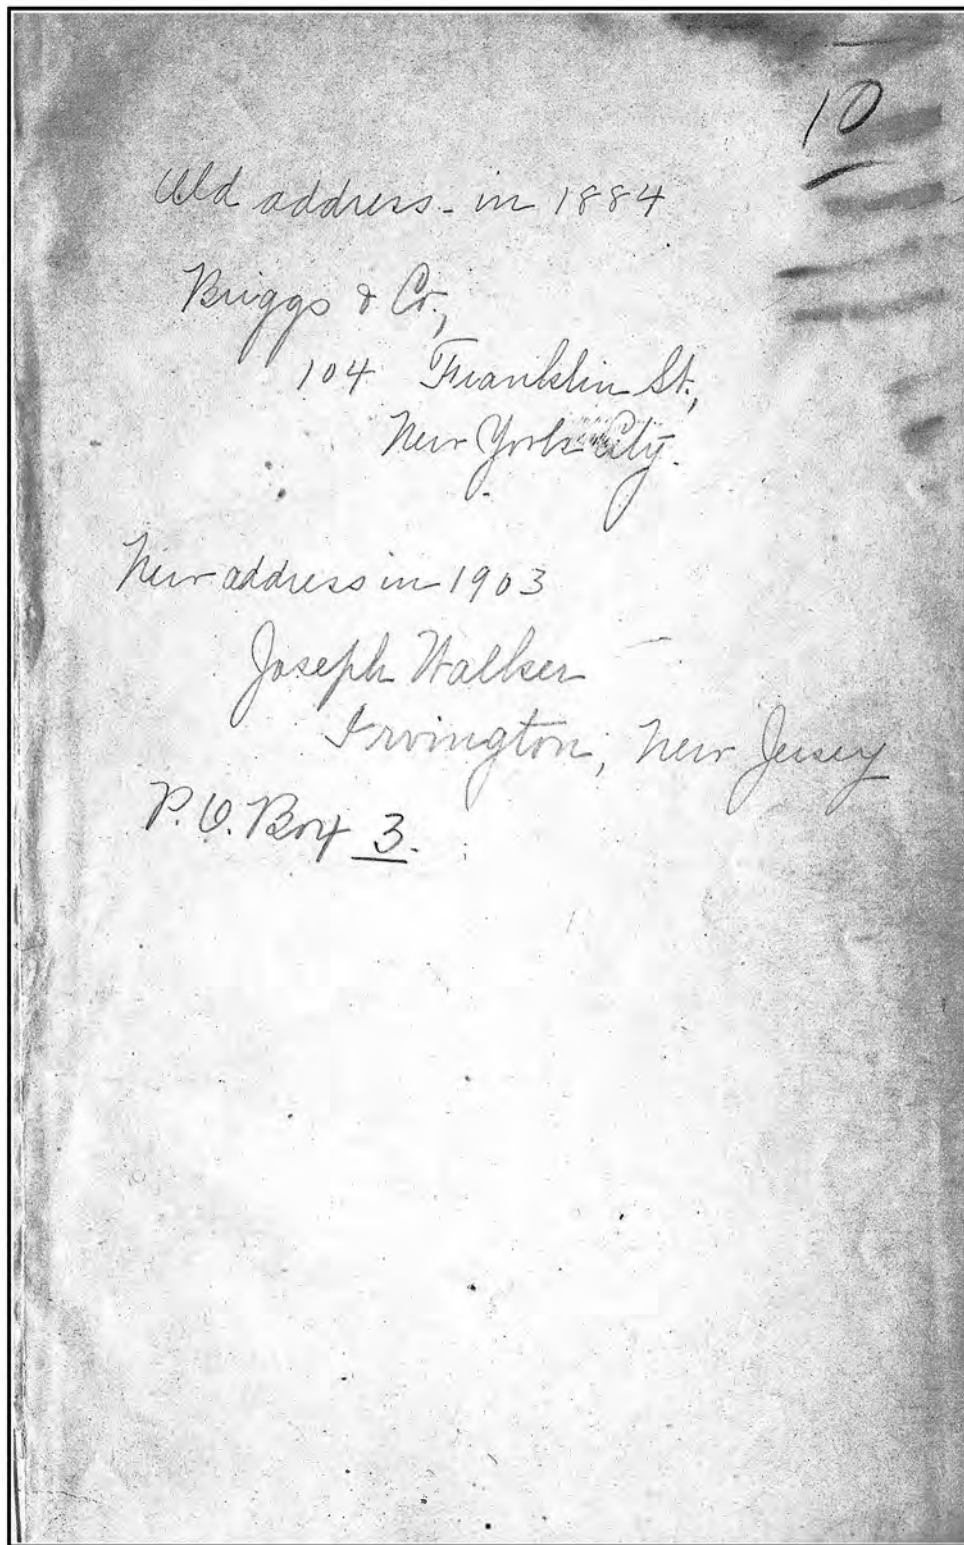 10
Old address - in 1884
Briggs & Co.,
104 Franklin St.,
New York City.
New address in 1903
Joseph Walker
Irvington, New Jersey
P.O. Box 3.